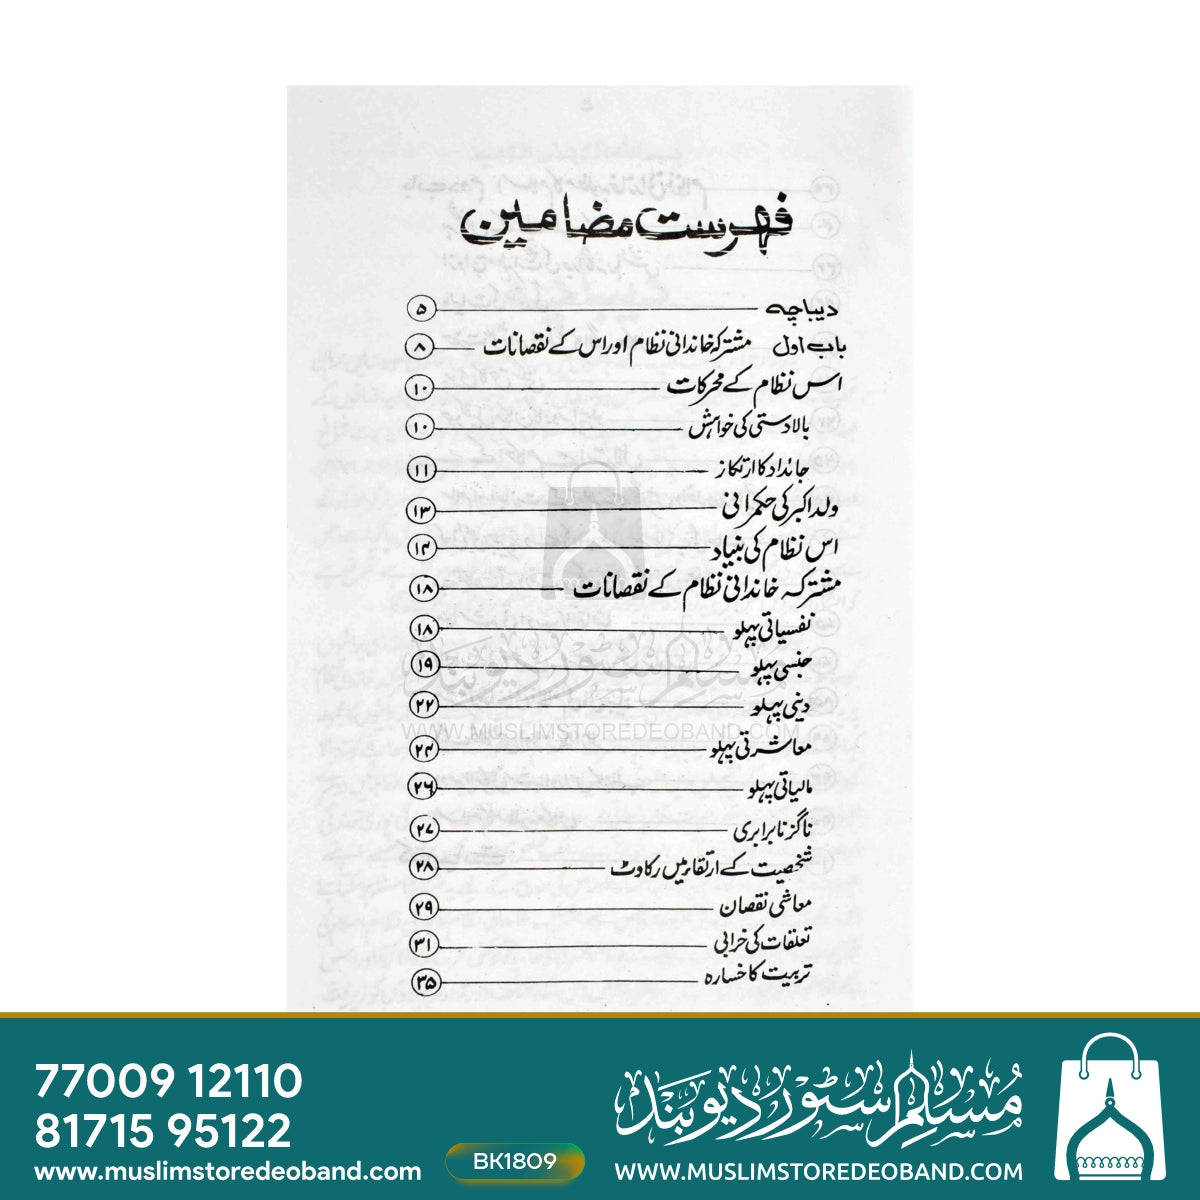 فہرست مضامین
دیباچہ ۵
باب اول مشترکہ خاندانی نظام اور اس کے نقصانات ۸
اس نظام کے محرکات ۱۰
بالادستی کی خواہش ۱۰
جائداد کا ارتکاز ۱۱
ولد اکبر کی حکمرانی ۱۳
اس نظام کی بنیاد ۱۴
مشترکہ خاندانی نظام کے نقصانات ۱۸
نفسیاتی پہلو ۱۸
جنسی پہلو ۱۹
دینی پہلو ۲۲
معاشرتی پہلو ۲۴
مالیاتی پہلو ۲۶
ناگزیر نابرابری ۲۷
شخصیت کے ارتقاء میں رکاوٹ ۲۸
معاشی نقصان ۲۹
تعلقات کی خرابی ۳۱
تربیت کا خسارہ ۳۵
مسلم سٹور دیوبند
WWW.MUSLIMSTOREDEOBAND.COM
77009 12110
81715 95122
www.muslimstoredeoband.com
BK1809
مُسلم سٹور دیوبند
WWW.MUSLIMSTOREDEOBAND.COM